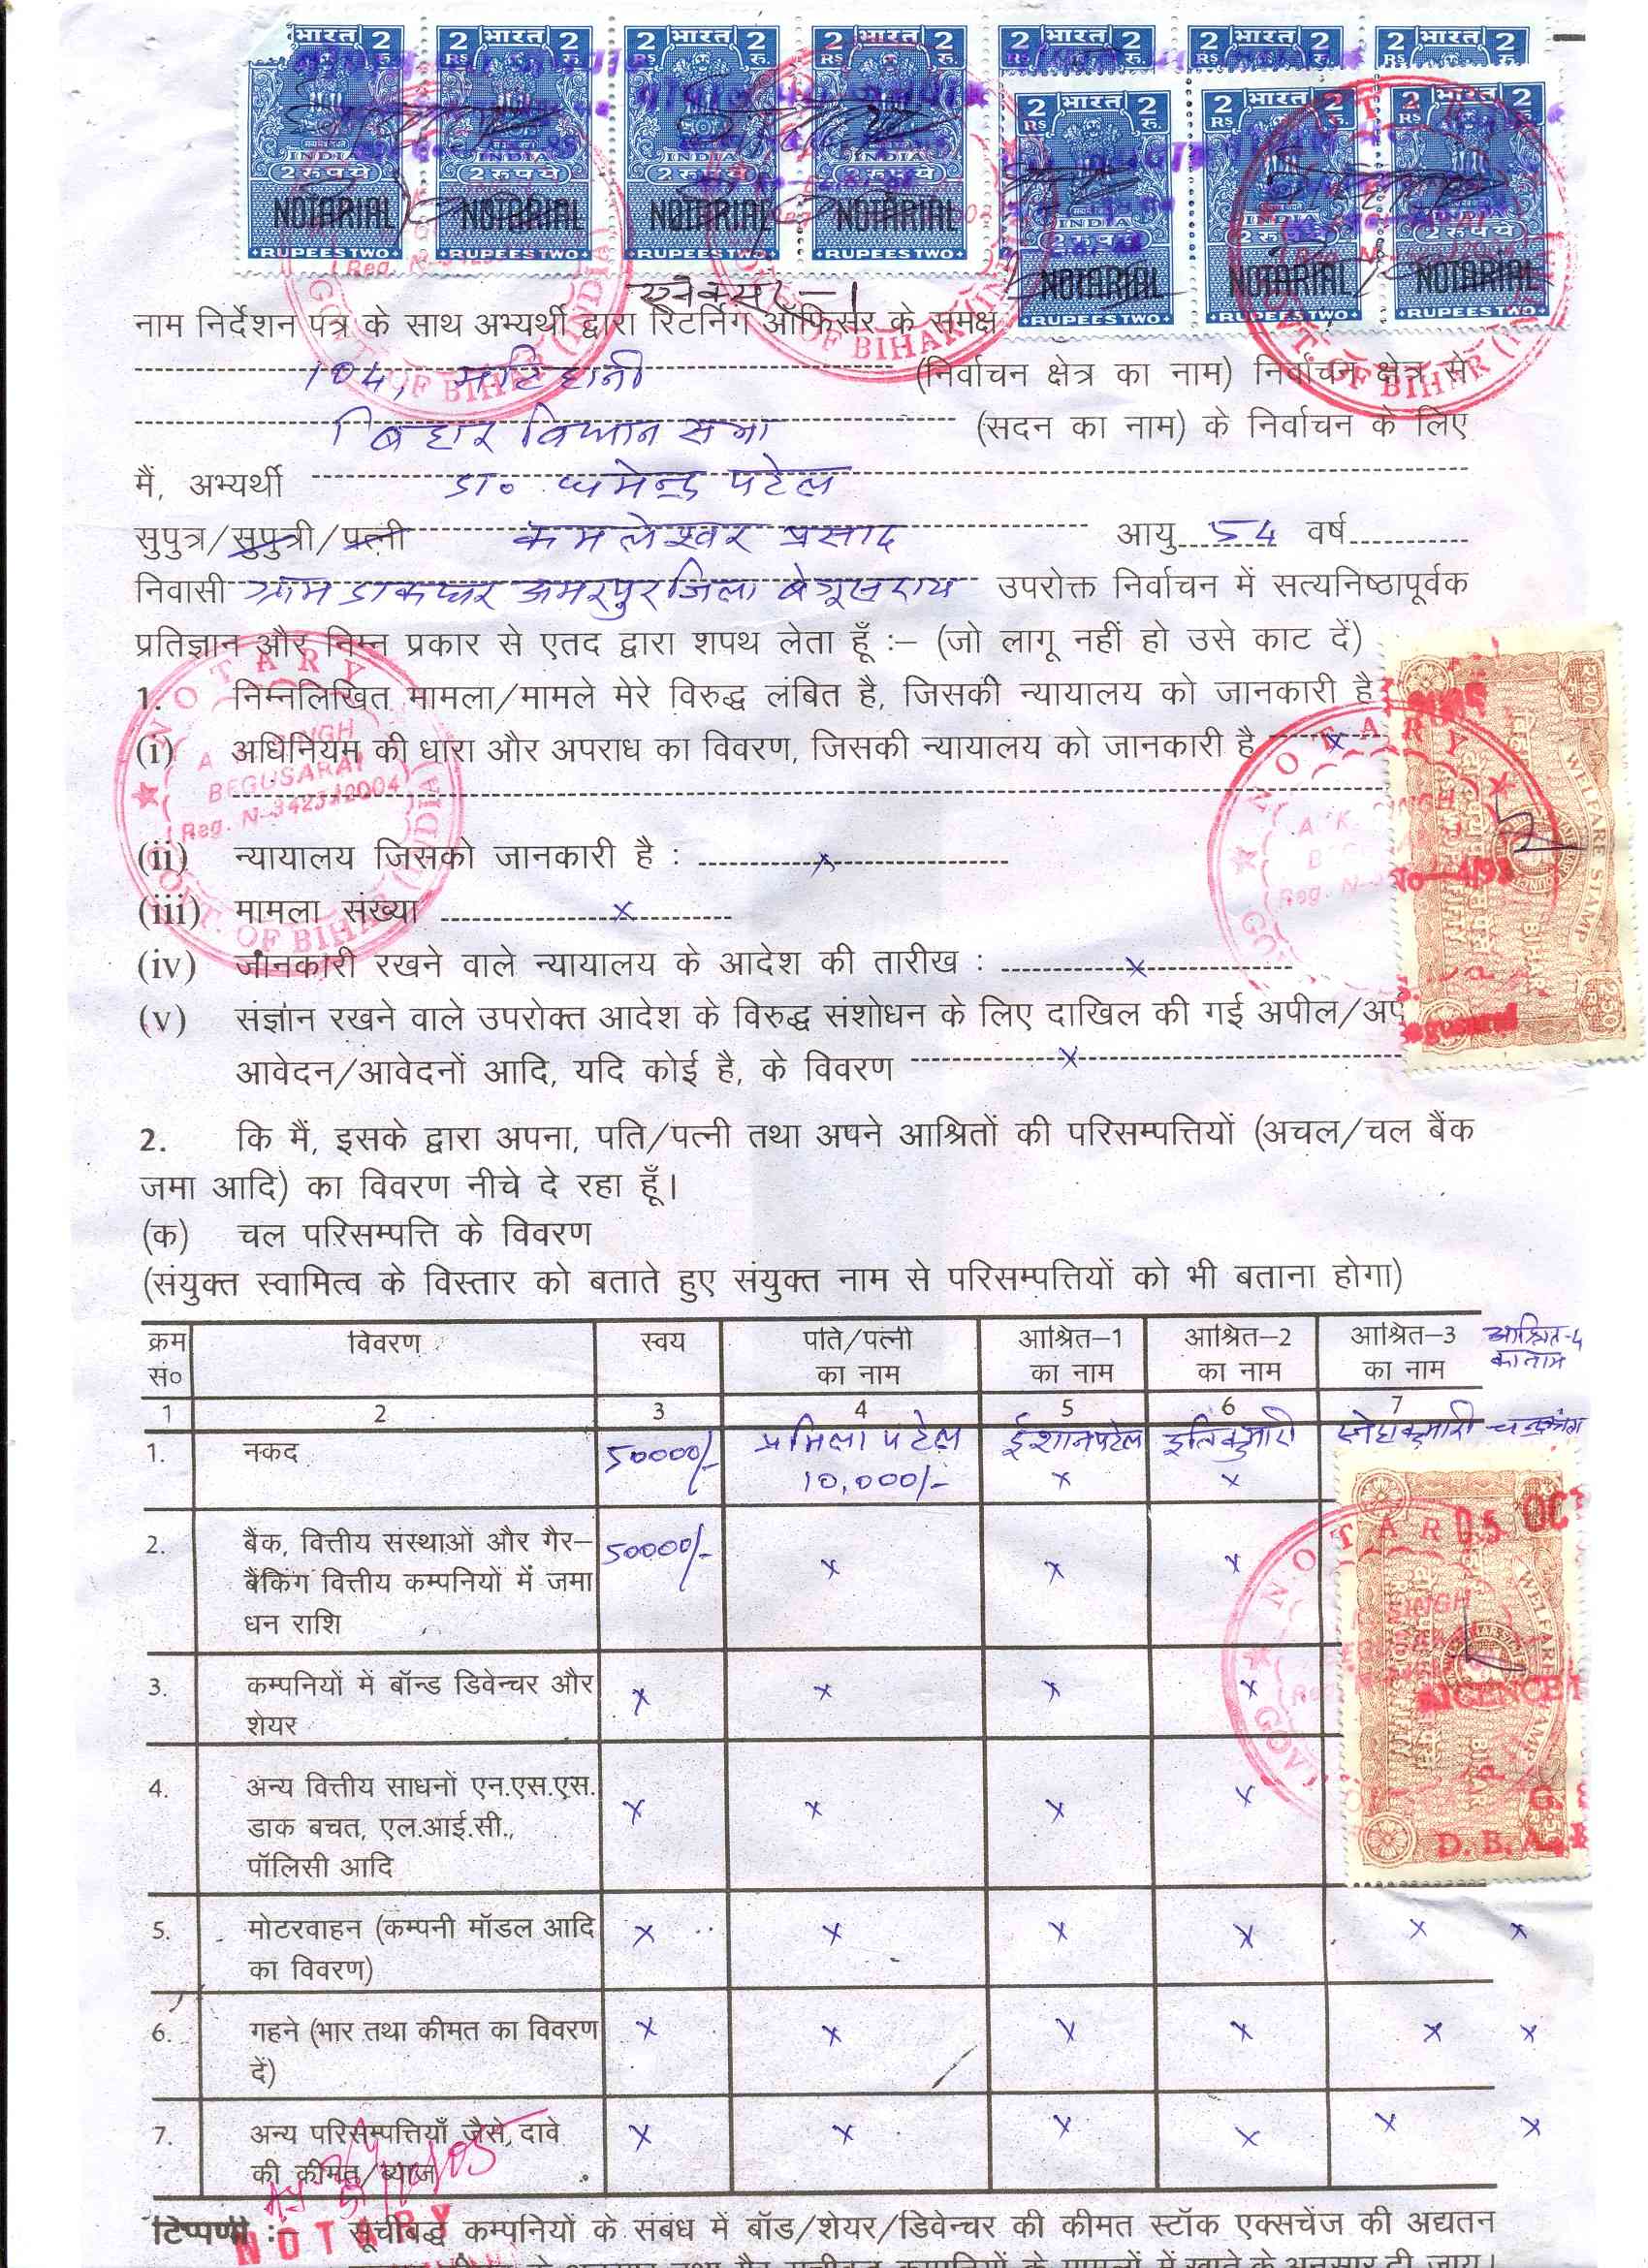 2 भारत 2 2 भारत 2 2 भारत 2 2 भारत 2 2 भारत 2 2 भारत 2 2 भारत 2
RS रु. RS रु. RS रु. RS रु. RS रु. RS रु.
2 भारत 2 2 भारत 2 2 भारत 2
RS रु. RS रु. RS रु.
INDIA INDIA INDIA INDIA
2 रुपये 2 रुपये 2 रुपये 2 रुपये
INDIA INDIA INDIA
2 रुपये 2 रुपये 2 रुपये
NOTARIAL NOTARIAL NOTARIAL NOTARIAL
RUPEES TWO RUPEES TWO RUPEES TWO RUPEES TWO
NOTARIAL NOTARIAL NOTARIAL
RUPEES TWO RUPEES TWO RUPEES TWO
GOVT. OF BIHAR (INDIA)
OF BIHAR (INDIA)
GOVT. OF BIHAR (INDIA)
एनेक्सर-1
नाम निर्देशन पत्र के साथ अभ्यर्थी द्वारा रिटर्निंग ऑफिसर के समक्ष
104, मटिहानी (निर्वाचन क्षेत्र का नाम) निर्वाचन क्षेत्र से
बिहार विधान सभा (सदन का नाम) के निर्वाचन के लिए
मैं, अभ्यर्थी डा० धमेन्द्र पटेल
सुपुत्र/सुपुत्री/पत्नी कमलेश्वर प्रसाद आयु 54 वर्ष
निवासी ग्राम डाकघर अमरपुर जिला बेगूसराय उपरोक्त निर्वाचन में सत्यनिष्ठापूर्वक
प्रतिज्ञान और निम्न प्रकार से एतद द्वारा शपथ लेता हूँ :– (जो लागू नहीं हो उसे काट दें)
1. निम्नलिखित मामला/मामले मेरे विरुद्ध लंबित है, जिसकी न्यायालय को जानकारी है
(i) अधिनियम की धारा और अपराध का विवरण, जिसकी न्यायालय को जानकारी है x
NOTARY
SINGH
BEGUSARAI
GOVT. OF BIHAR (INDIA)
(ii) न्यायालय जिसको जानकारी है : x
(iii) मामला संख्या x
(iv) जानकारी रखने वाले न्यायालय के आदेश की तारीख : x
(v) संज्ञान रखने वाले उपरोक्त आदेश के विरुद्ध संशोधन के लिए दाखिल की गई अपील/अपी
आवेदन/आवेदनों आदि, यदि कोई है, के विवरण x
NOTARY
WELFARE STAMP
BIHAR
2. कि मैं, इसके द्वारा अपना, पति/पत्नी तथा अपने आश्रितों की परिसम्पत्तियों (अचल/चल बैंक
जमा आदि) का विवरण नीचे दे रहा हूँ।
(क) चल परिसम्पत्ति के विवरण
(संयुक्त स्वामित्व के विस्तार को बताते हुए संयुक्त नाम से परिसम्पत्तियों को भी बताना होगा)
क्रम विवरण स्वय पति/पत्नी आश्रित–1 आश्रित–2 आश्रित–3 आश्रित-4
सं० का नाम का नाम का नाम का नाम का नाम
1 2 3 4 5 6 7
1. नकद 50000/- प्रमिला पटेल ईशान पटेल इति कुमारी स्नेहा कुमारी
10,000/- x x
2. बैंक, वित्तीय संस्थाओं और गैर– 50000/- x x x
बैंकिंग वित्तीय कम्पनियों में जमा
धन राशि
3. कम्पनियों में बॉन्ड डिवेन्चर और x x x x
शेयर
4. अन्य वित्तीय साधनों एन.एस.एस. x x x x
डाक बचत, एल.आई.सी.,
पॉलिसी आदि
NOTARY
05 OCT
SINGH
WELFARE STAMP
BIHAR
D. B. A.
5. मोटरवाहन (कम्पनी मॉडल आदि x x x x x x
का विवरण)
6. गहने (भार तथा कीमत का विवरण x x x x x x
दें)
7. अन्य परिसम्पत्तियाँ जैसे, दावे x x x x x x
की कीमत/ब्याज
NOTARY
टिप्पणी :– सूचीबद्ध कम्पनियों के संबंध में बॉड/शेयर/डिवेन्चर की कीमत स्टॉक एक्सचेंज की अद्यतन